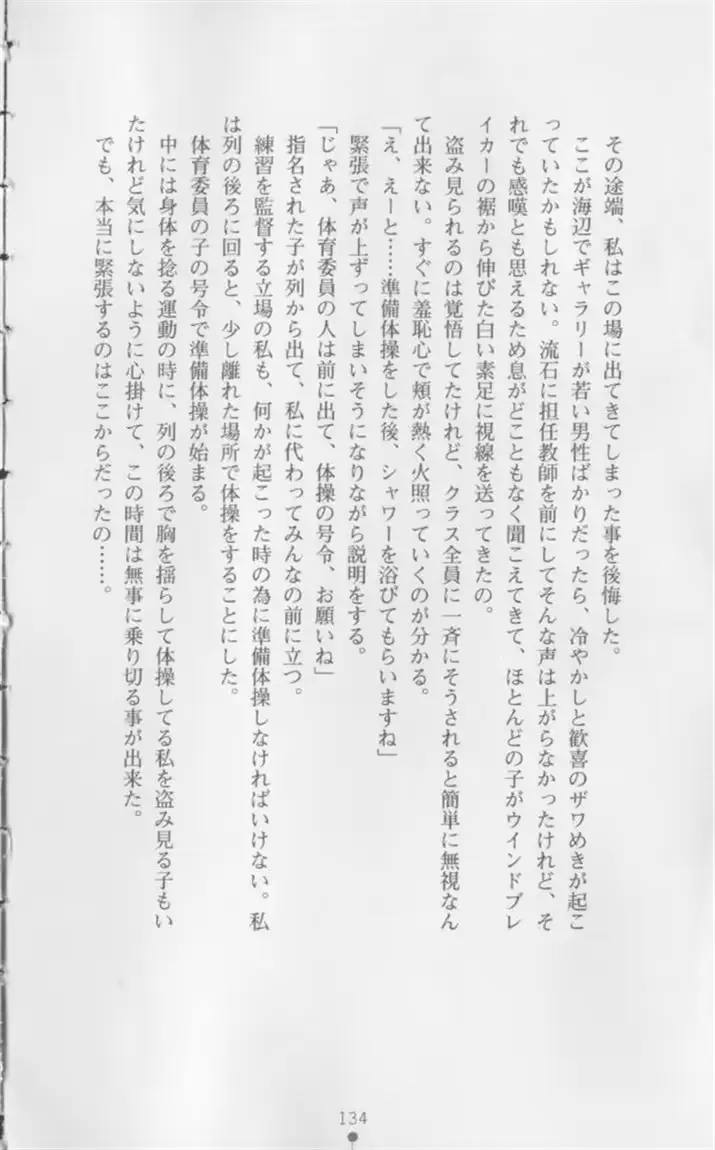 その途端、私はこの場に出てきてしまった事を後悔した。
ここが海辺でギャラリーが若い男性ばかりだったら、冷やかしと歓喜のザワめきが起こ
っていたかもしれない。流石に担任教師を前にしてそんな声は上がらなかったけれど、そ
れでも感嘆とも思えるため息がどこともなく聞こえてきて、ほとんどの子がウインドブレ
イカーの裾から伸びた白い素足に視線を送ってきたの。
盗み見られるのは覚悟してたけれど、クラス全員に一斉にそうされると簡単に無視なん
て出来ない。すぐに羞恥心で頬が熱く火照っていくのが分かる。
「え、えーと……準備体操をした後、シャワーを浴びてもらいますね」
緊張で声が上ずってしまいそうになりながら説明をする。
「じゃあ、体育委員の人は前に出て、体操の号令、お願いね」
指名された子が列から出て、私に代わってみんなの前に立つ。
練習を監督する立場の私も、何かが起こった時の為に準備体操しなければいけない。私
は列の後ろに回ると、少し離れた場所で体操をすることにした。
体育委員の子の号令で準備体操が始まる。
中には身体を捻る運動の時に、列の後ろで胸を揺らして体操してる私を盗み見る子もい
たけれど気にしないように心掛けて、この時間は無事に乗り切る事が出来た。
でも、本当に緊張するのはここからだったの……。
134